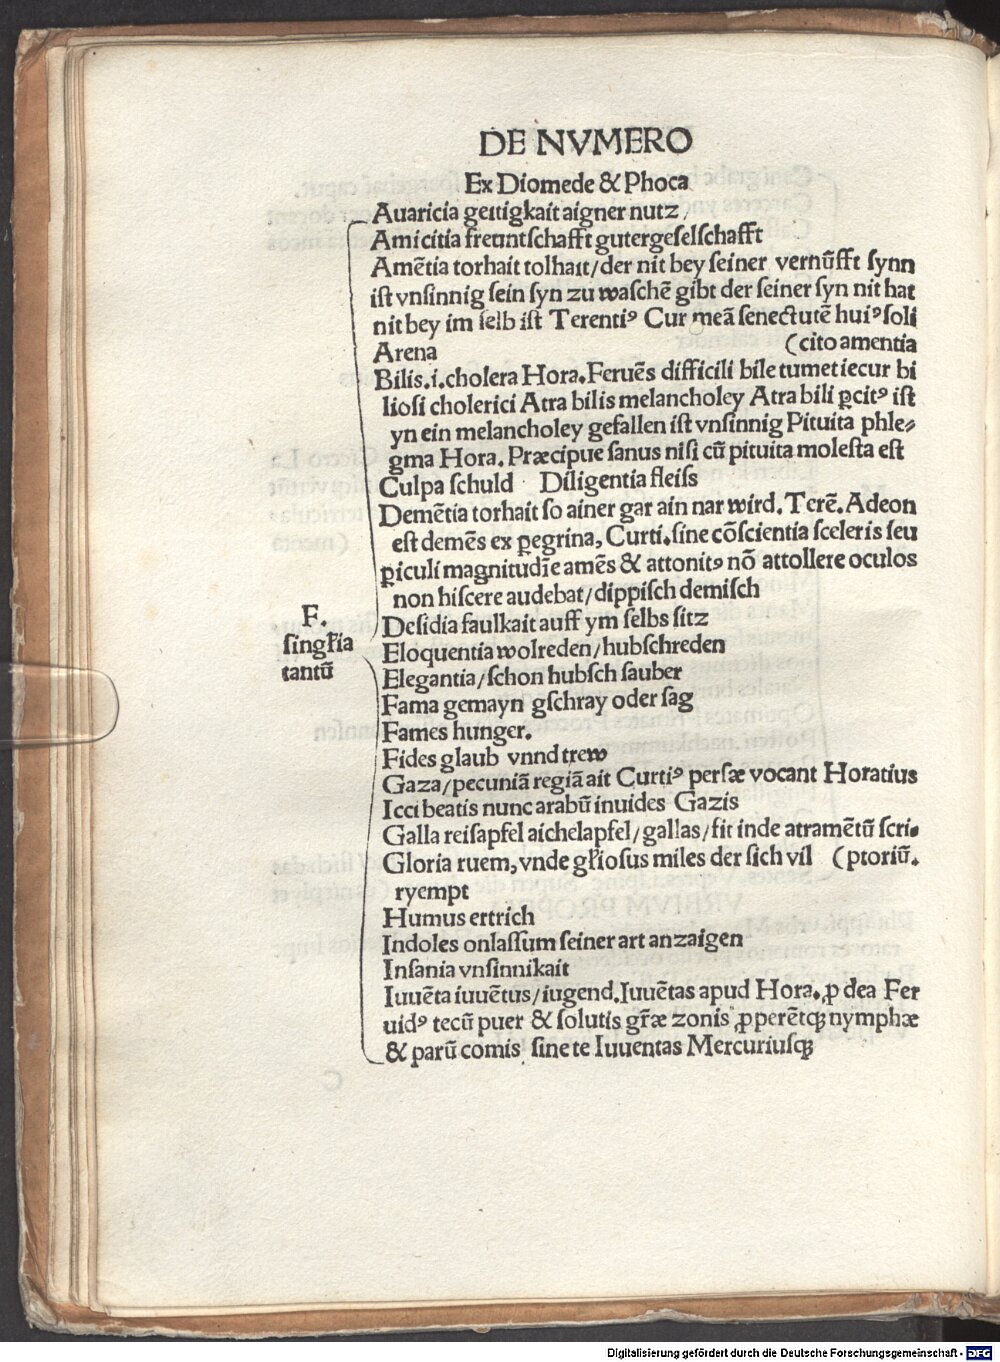 DE NVMERO
Ex Diomede & Phoca
Auaricia geitigkait aigner nutz /
Amicitia freuntſchafft gutergeſelſchafft
Amẽtia torhait tolhait/der nit bey ſeiner vernũfft ſynn
iſt vnſinnig ſein ſyn zu waſchẽ gibt der ſeiner ſyn nit hat
nit bey im ſelb iſt Terentiꝰ Cur meã ſenectutẽ huiꝰ ſoli
Arena (cito amentia
Bilis.i.cholera Hora.Feruẽs difficili bile tumet iecur bi
lioſi cholerici Atra bilis melancholey Atra bili ꝑcitꝰ iſt
yn ein melancholey gefallen iſt vnſinnig Pituita phle⸗
gma Hora.Præcipue ſanus niſi cũ pituita moleſta eſt
Culpa ſchuld Diligentia fleiſs
Demẽtia torhait ſo ainer gar ain nar wird.Terẽ.Adeon
eſt demẽs ex ꝑegrina, Curti.ſine cõſcientia ſceleris ſeu
ꝑiculi magnitudĩe amẽs & attonitꝰ nõ attollere oculos
non hiſcere audebat/dippiſch demiſch
F.
ſingłia
tantũ
Deſidia faulkait auff ym ſelbs ſitz
Eloquentia wolreden/hubſchreden
Elegantia/ſchon hubſch ſauber
Fama gemayn gſchray oder ſag
Fames hunger.
Fides glaub vnnd trew
Gaza/pecuniã regiã ait Curtiꝰ perſæ vocant Horatius
Icci beatis nunc arabũ inuides Gazis
Galla reiſapfel aichelapfel/gallas/fit inde atramẽtũ ſcri.
Gloria ruem,vnde głioſus miles der ſich vil (ptoriũ.
ryempt
Humus ertrich
Indoles onlaſſum ſeiner art anzaigen
Inſania vnſinnikait
Iuuẽta iuuẽtus/iugend.Iuuẽtas apud Hora.ꝓ dea Fer
uidꝰ tecũ puer & ſolutis gr̃æ zonis ꝓperẽtqꝫ nymphæ
& parũ comis ſine te Iuuentas Mercuriuſqꝫ
Digitalisierung gefördert durch die Deutsche Forschungsgemeinschaft - DFG